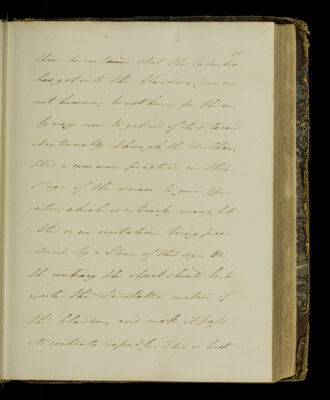 then be certain that the Calculus
has got into the bladder. you are
not however to rest here, for the on
ly way now to get rid of it is to
externally through the Urethra.
It is a common practice in this
stage of the disease to give Opi
ates, which is extremely wrong, for
there is no irritation being pro
duced by a Stone of this size. On
the contrary the object should be to
excite the Peristaltic motion of
the bladder, and make it pass
its contents rapidly. This is best